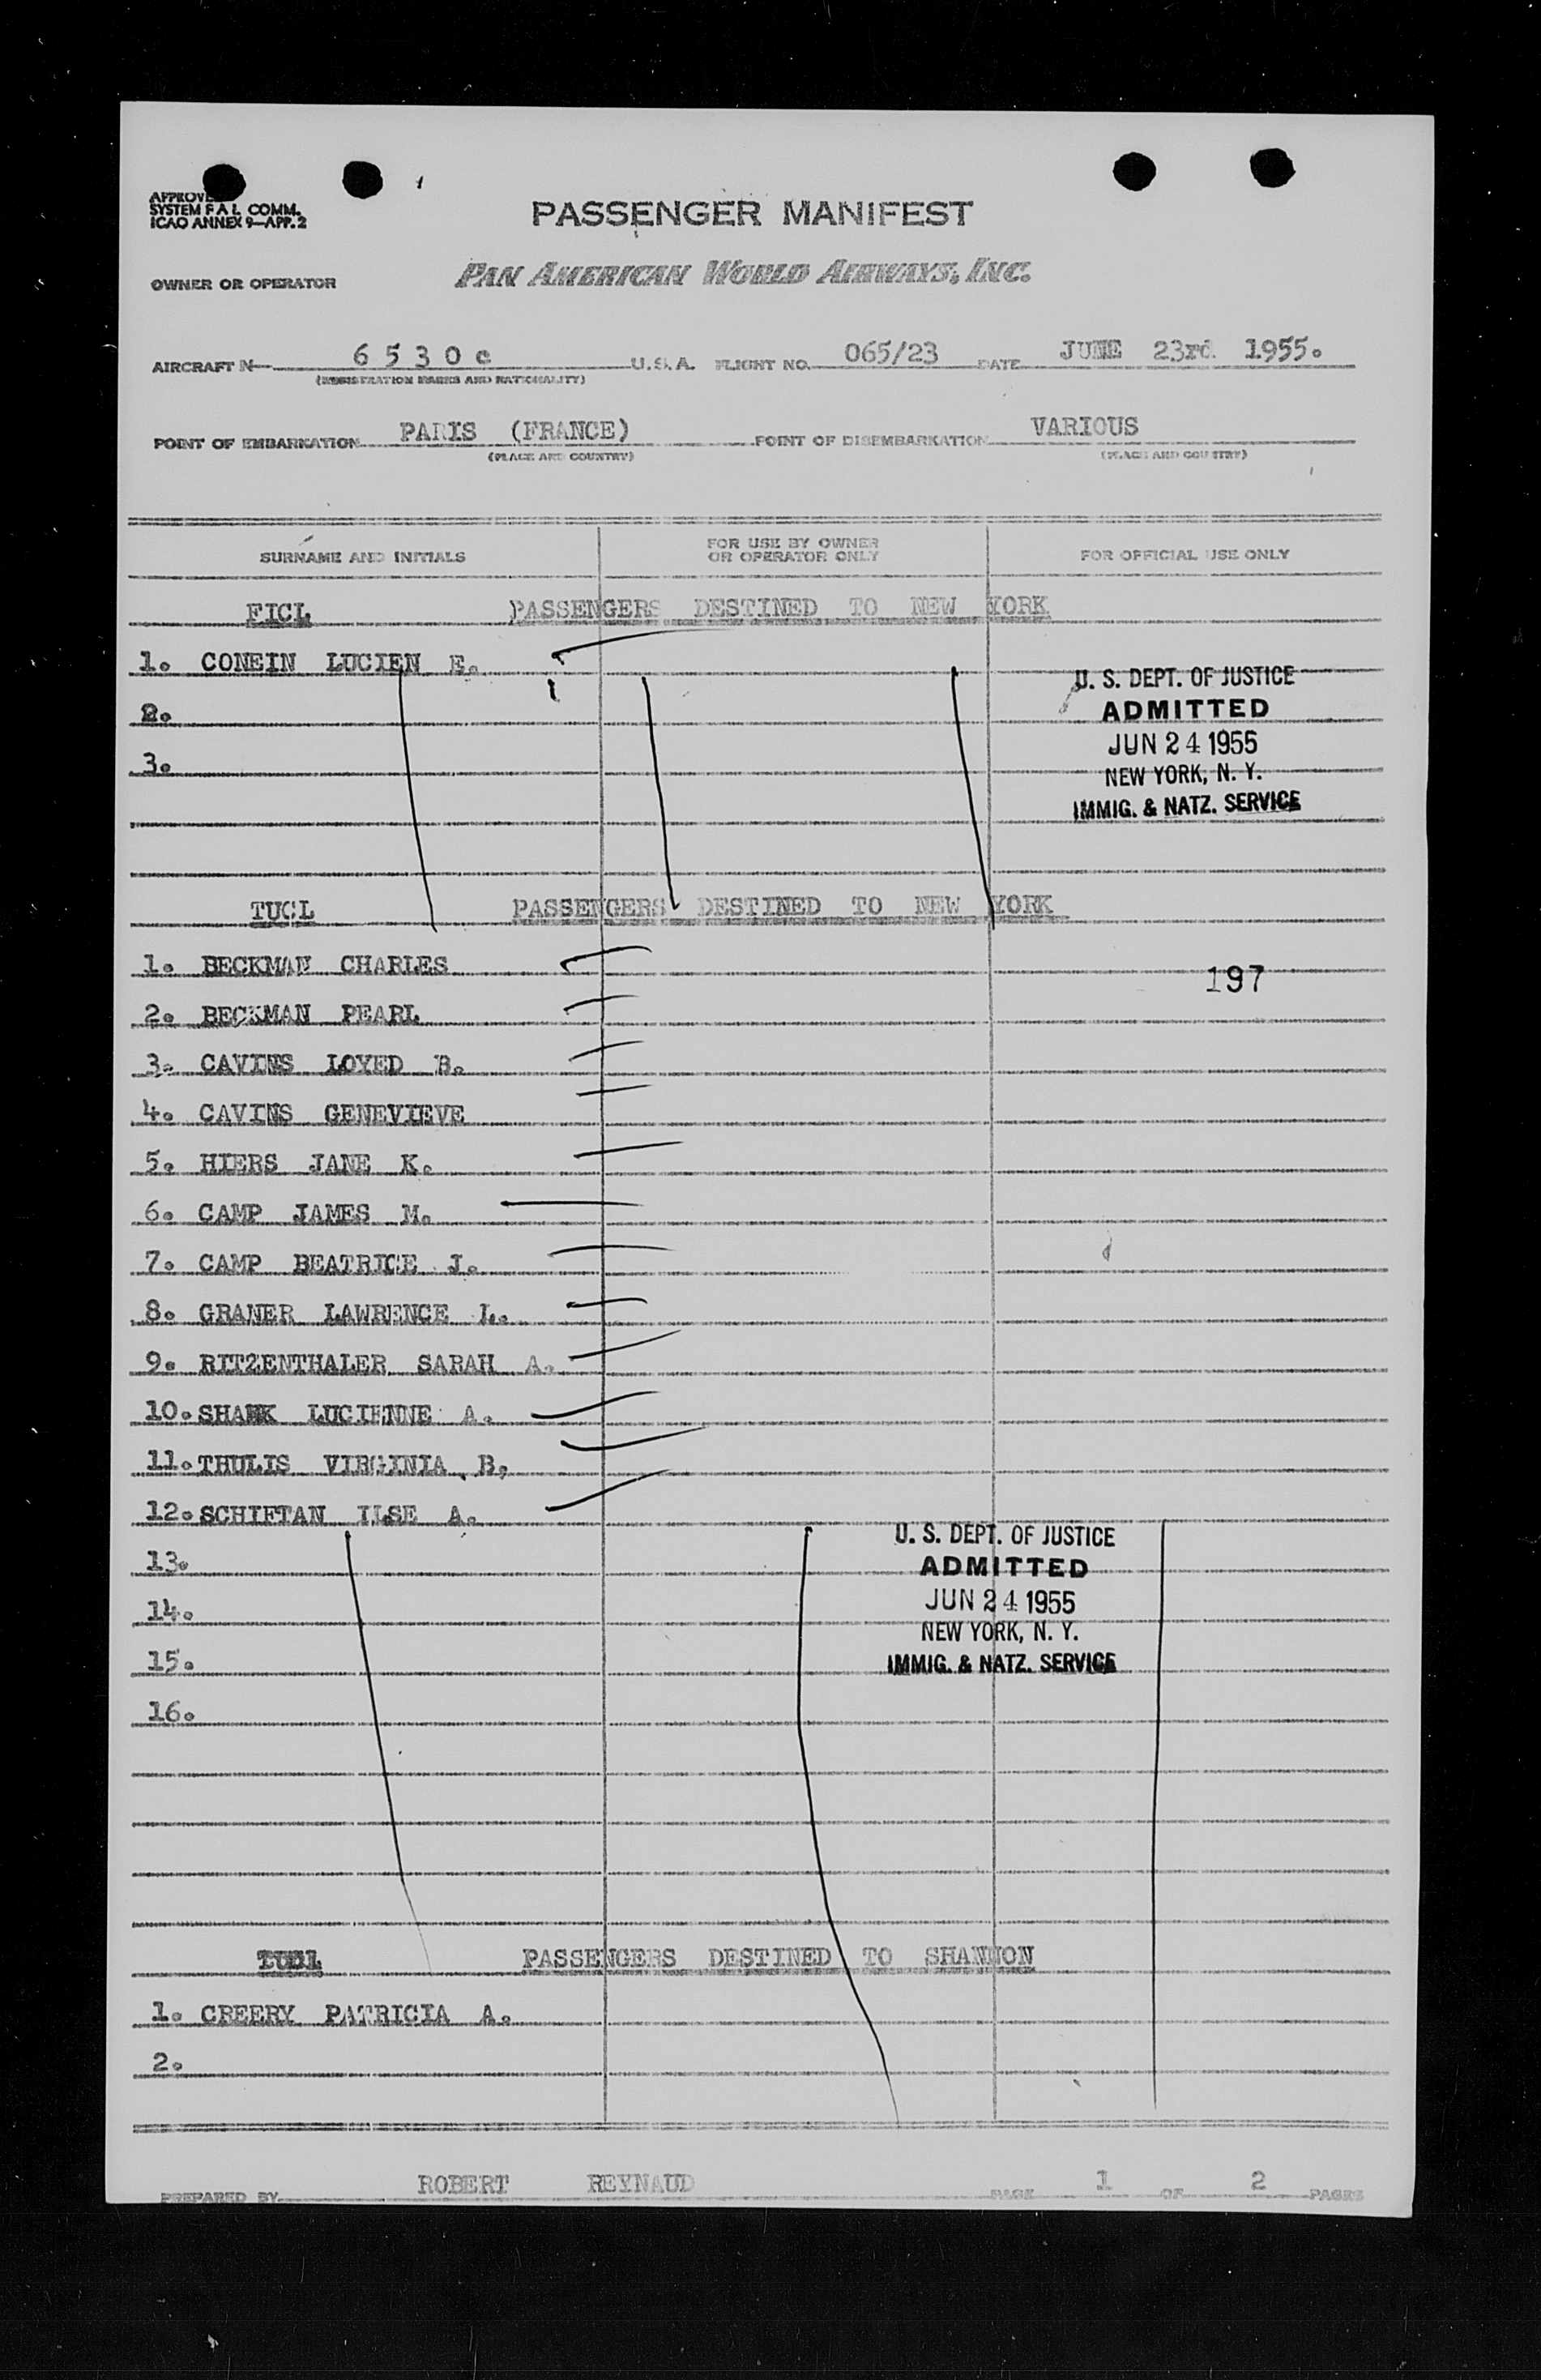 SYSTEM F A L COMM.
ICAO ANNEX 9—APP. 2
PASSENGER MANIFEST
OWNER OR OPERATOR PAN AMERICAN WORLD AIRWAYS, INC.
AIRCRAFT N 6 5 3 0 c U.S.A. FLIGHT NO. 065/23 DATE JUNE 23rd 1955.
(REGISTRATION MARKS AND NATIONALITY)
POINT OF EMBARKATION PARIS (FRANCE) POINT OF DISEMBARKATION VARIOUS
(PLACE AND COUNTRY) (PLACE AND COUNTRY)
SURNAME AND INITIALS FOR USE BY OWNER OR OPERATOR ONLY FOR OFFICIAL USE ONLY
FICL PASSENGERS DESTINED TO NEW YORK
1. CONEIN LUCIEN E.
U. S. DEPT. OF JUSTICE
2. ADMITTED
JUN 24 1955
3. NEW YORK, N. Y.
IMMIG. & NATZ. SERVICE
TUCL PASSENGERS DESTINED TO NEW YORK
1. BECKMAN CHARLES
197
2. BECKMAN PEARL
3. CAVINS LOYED B.
4. CAVINS GENEVIEVE
5. HIERS JANE K.
6. CAMP JAMES M.
7. CAMP BEATRICE J.
8. GRANER LAWRENCE L.
9. RITZENTHALER SARAH A.
10. LUCIENNE A.
11. THULIS VIRGINIA B,
12. SCHIFTAN ILSE A.
U. S. DEPT. OF JUSTICE
13. ADMITTED
14. JUN 24 1955
NEW YORK, N. Y.
15. IMMIG. & NATZ. SERVICE
16.
PASSENGERS DESTINED TO SHANNON
1. CREERY PATRICIA A.
2.
PREPARED BY ROBERT REYNAUD PAGE 1 OF 2 PAGES